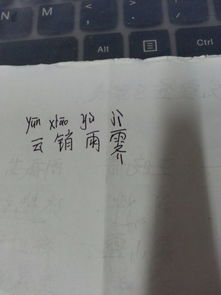 N M < >
Alt Ctrl
yún xiāo yǔ jì
云销雨霁